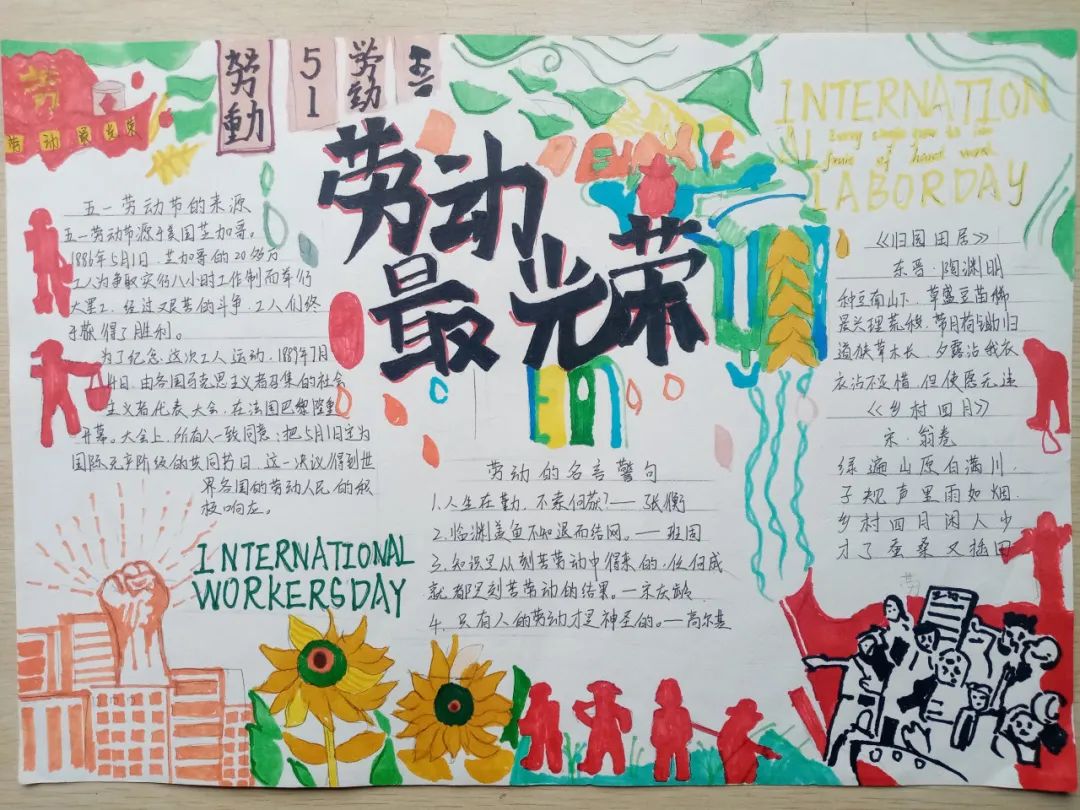 劳动最光荣
努動
51
劳动
五一
劳动
最光荣
INTERNATION
AL
Every single gain is the
fruit of hard work
LABORDAY
五一劳动节的来源
五一劳动节源于美国芝加哥。
1886年5月1日,芝加哥的20多万
工人为争取实行八小时工作制而举行
大罢工,经过艰苦的斗争,工人们终
于获得了胜利。
为了纪念这次工人运动,1889年7月
14日,由各国马克思主义者召集的社会
主义者代表大会,在法国巴黎隆重
开幕。大会上,所有人一致同意:把5月1日定为
国际无产阶级的共同节日,这一决议得到世
界各国的劳动人民的积
极响应。
INTERNATIONAL
WORKERSDAY
劳动的名言警句
1.人生在勤,不索何获?——张衡
2.临渊羡鱼不如退而结网。——班固
3.知识是从刻苦劳动中得来的,任何成
就都是刻苦劳动的结果。—宋庆龄
4.只有人的劳动才是神圣的。—高尔基
《归园田居》
东晋·陶渊明
种豆南山下,草盛豆苗稀
晨兴理荒秽,带月荷锄归
道狭草木长,夕露沾我衣
衣沾不足惜,但使愿无违
《乡村四月》
宋·翁卷
绿遍山原白满川,
子规声里雨如烟.
乡村四月闲人少
才了蚕桑又插田